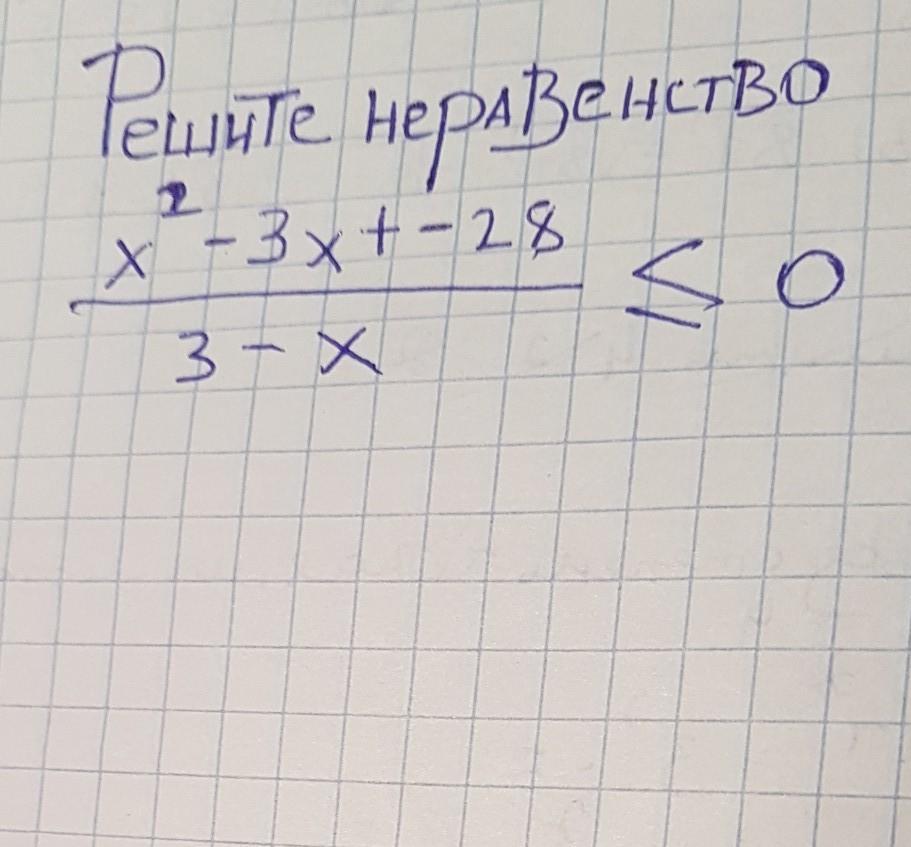 Решите неравенство
x² - 3x + - 28
≤ 0
3 - x